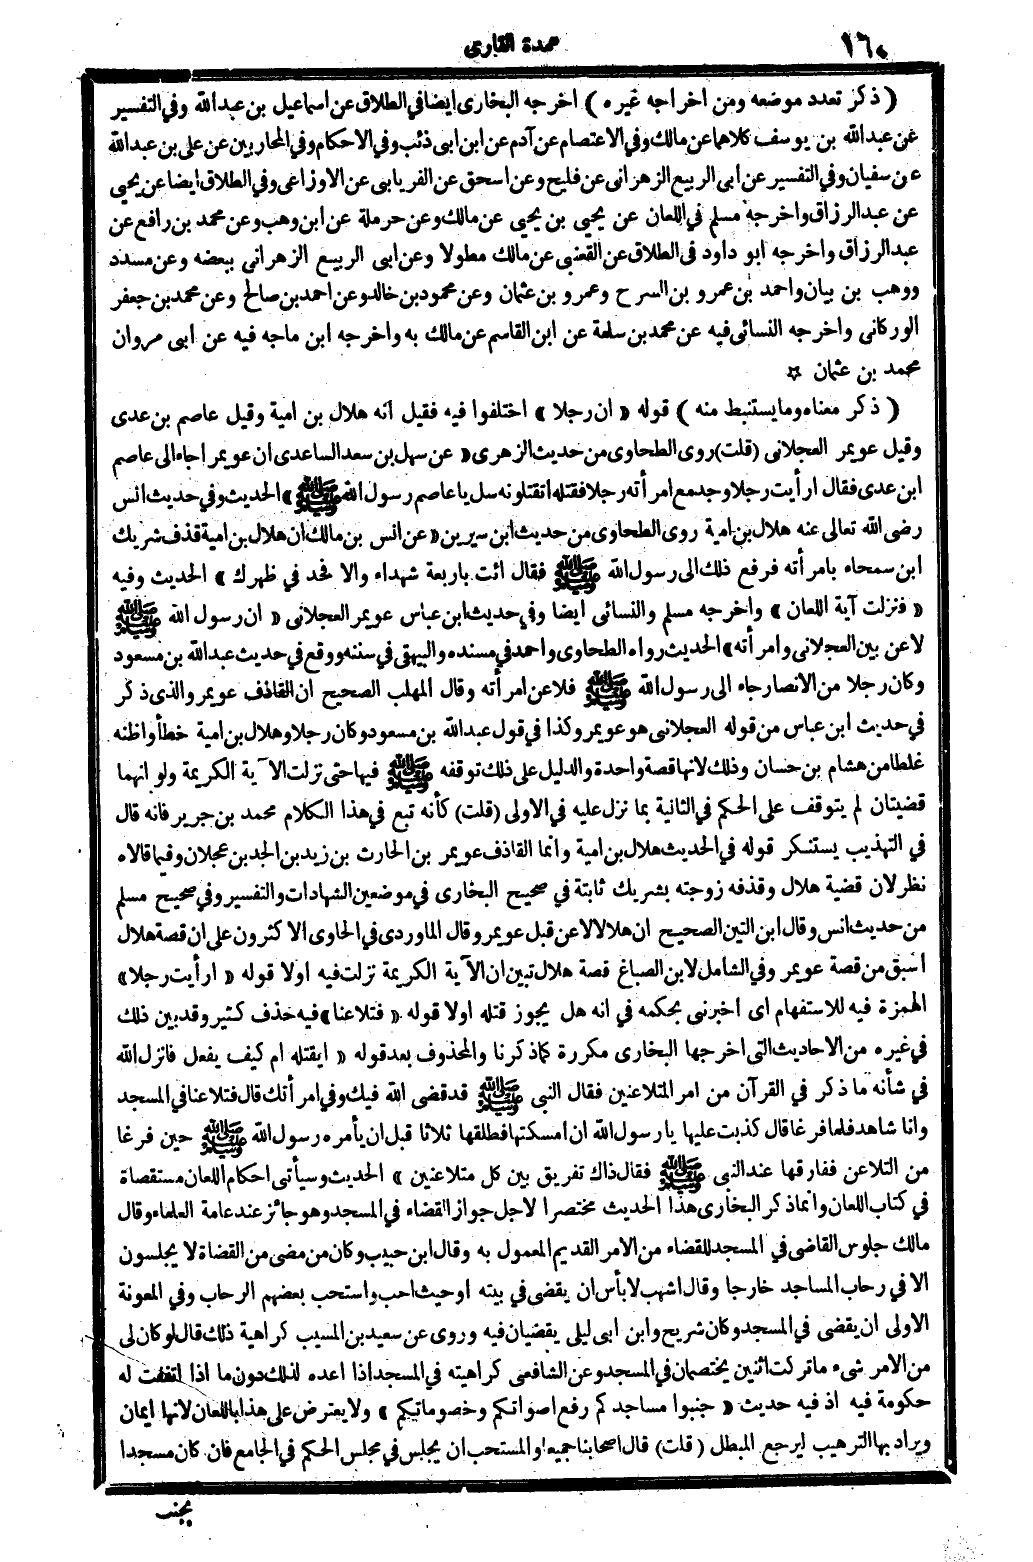 ١٦٠
عمدة القارى
( ذكر تعدد موضعه ومن اخراجه غيره ) اخرجه البخارى ايضا في الطلاق عن اسماعيل بن عبدالله وفي التفسير
عن عبدالله بن يوسف كلاهما عن مالك وفي الاعتصام عن آدم عن ابن ابى ذئب وفي الاحكام وفي المحاربين عن على بن عبدالله
عن سفيان وفي التفسير عن ابى الربيع الزهرانى عن فليح وعن اسحق عن الفريابى عن الاوزاعى وفي الطلاق ايضا عن يحيى
عن عبدالرزاق واخرجه مسلم في اللعان عن يحيى بن يحيى عن مالك وعن حرملة عن ابن وهب وعن محمد بن رافع عن
عبدالرزاق واخرجه ابو داود فى الطلاق عن القعنبى عن مالك مطولا وعن ابى الربيع الزهرانى ببعضه وعن مسدد
ووهب بن بيان واحمد بن عمرو بن السرح وعمرو بن عثمان وعن محمود بن خالد وعن احمد بن صالح وعن محمد بن جعفر
الوركانى واخرجه النسائى فيه عن محمد بن سلمة عن ابن القاسم عن مالك به واخرجه ابن ماجه فيه عن ابى مروان
محمد بن عثمان ☆
( ذكر معناه وما يستنبط منه ) قوله « ان رجلا » اختلفوا فيه فقيل انه هلال بن امية وقيل عاصم بن عدى
وقيل عويمر العجلانى (قلت) روى الطحاوى من حديث الزهرى « عن سهل بن سعد الساعدى ان عويمرا جاء الى عاصم
ابن عدى فقال ارأيت رجلا وجد مع امرأته رجلا فقتله اتقتلونه سل يا عاصم رسول الله ﷺ » الحديث وفي حديث انس
رضى الله تعالى عنه هلال بن امية روى الطحاوى من حديث ابن سيرين « عن انس بن مالك ان هلال بن امية قذف شريك
ابن سمحاء بامرأته فرفع ذلك الى رسول الله ﷺ فقال ائت باربعة شهداء والا فحد في ظهرك » الحديث وفيه
« فنزلت آية اللعان » واخرجه مسلم والنسائى ايضا وفي حديث ابن عباس عويمر العجلانى « ان رسول الله ﷺ
لاعن بين العجلانى وامرأته » الحديث رواه الطحاوى واحمد في مسنده والبيهقى في سننه ووقع في حديث عبدالله بن مسعود
وكان رجلا من الانصار جاء الى رسول الله ﷺ فلاعن امرأته وقال المهلب الصحيح ان القاذف عويمر والذى ذكر
في حديث ابن عباس من قوله العجلانى هو عويمر وكذا في قول عبدالله بن مسعود وكان رجلا وهلال بن امية خطأ واظنه
غلطا من هشام بن حسان وذلك لانها قصة واحدة والدليل على ذلك توقفه ﷺ فيها حتى نزلت الآية الكريمة ولو انهما
قضيتان لم يتوقف على الحكم في الثانية بما نزل عليه في الاولى (قلت) كأنه تبع في هذا الكلام محمد بن جرير فانه قال
في التهذيب يستنكر قوله في الحديث هلال بن امية وانما القاذف عويمر بن الحارث بن زيد بن الجد بن عجلان وفيما قالاه
نظر لان قضية هلال وقذفه زوجته بشريك ثابتة في صحيح البخارى في موضعين الشهادات والتفسير وفي صحيح مسلم
من حديث انس وقال ابن التين الصحيح ان هلالا لاعن قبل عويمر وقال الماوردى في الحاوى الاكثرون على ان قصة هلال
اسبق من قصة عويمر وفي الشامل لابن الصباغ قصة هلال تبين ان الآية الكريمة نزلت فيه اولا قوله « ارأيت رجلا »
الهمزة فيه للاستفهام اى اخبرنى بحكمه في انه هل يجوز قتله اولا قوله « فتلاعنا » فيه حذف كثير وقد بين ذلك
في غيره من الاحاديث التى اخرجها البخارى مكررة كما ذكرنا والمحذوف بعد قوله « ايقتله ام كيف يفعل فانزل الله
في شأنه ما ذكر في القرآن من امر المتلاعنين فقال النبى ﷺ قد قضى الله فيك وفي امرأتك قال فتلاعنا في المسجد
وانا شاهد فلما فرغا قال كذبت عليها يا رسول الله ان امسكتها فطلقها ثلاثا قبل ان يأمره رسول الله ﷺ حين فرغا
من التلاعن ففارقها عند النبى ﷺ فقال ذاك تفريق بين كل متلاعنين » الحديث وسيأتى احكام اللعان مستقصاة
في كتاب اللعان وانما ذكر البخارى هذا الحديث مختصرا لاجل جواز القضاء في المسجد وهو جائز عند عامة العلماء وقال
مالك جلوس القاضى في المسجد للقضاء من الامر القديم المعمول به وقال ابن حبيب وكان من مضى من القضاة لا يجلسون
الا في رحاب المساجد خارجا وقال اشهب لا بأس ان يقضى في بيته او حيث احب واستحب بعضهم الرحاب وفي المعونة
الاولى ان يقضى في المسجد وكان شريح وابن ابى ليلى يقضيان فيه وروى عن سعيد بن المسيب كراهية ذلك قال لو كان لى
من الامر شىء ما تركت اثنين يختصمان في المسجد وعن الشافعى كراهيته في المسجد اذا اعده لذلك دون ما اذا اتفقت له
حكومة فيه اذ فيه حديث « جنبوا مساجدكم رفع اصواتكم وخصوماتكم » ولا يعترض على هذا باللعان لانها ايمان
ويراد بها الترهيب ليرجع المبطل (قلت) قال اصحابنا جميعا والمستحب ان يجلس في مجلس الحكم في الجامع فان كان مسجدا
بجنب